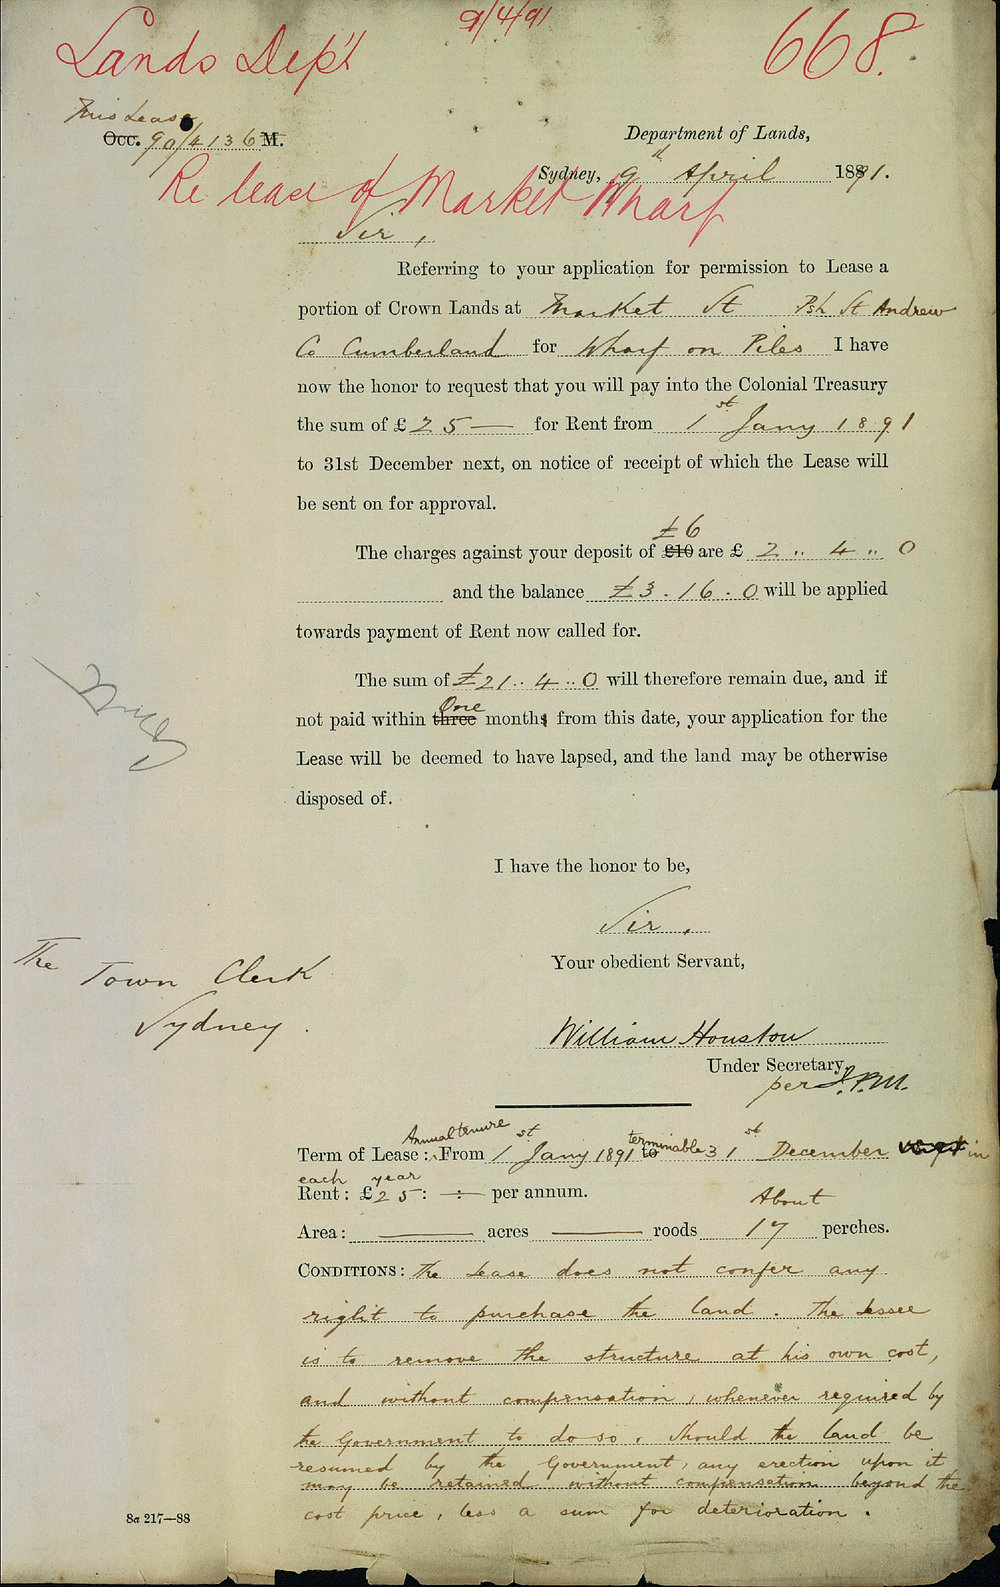 9/4/91
Lands Dep't 668.
Mis Lease
Occ. 90/4136 M.
Department of Lands,
Sydney, 9th April 1891.
Re lease of Market Wharf
Sir,
Referring to your application for permission to Lease a
portion of Crown Lands at Market St Psh St Andrew
Co Cumberland for Wharf on Piles I have
now the honor to request that you will pay into the Colonial Treasury
the sum of £25 — for Rent from 1st Jany 1891
to 31st December next, on notice of receipt of which the Lease will
be sent on for approval.
£6
The charges against your deposit of £10 are £ 2 .. 4 .. 0
and the balance £3 . 16 . 0 will be applied
towards payment of Rent now called for.
The sum of £21 .. 4 .. 0 will therefore remain due, and if
One
not paid within three months from this date, your application for the
Lease will be deemed to have lapsed, and the land may be otherwise
disposed of.
I have the honor to be,
Sir.
Your obedient Servant,
The
Town Clerk
Sydney.
William Houston
Under Secretary,
per J.P.M.
Annual tenure terminable
Term of Lease: From 1st Jany 1891 to 31st December in
each year
Rent: £25 : — : — per annum.
About
Area: — acres — roods 17 perches.
CONDITIONS: The Lease does not confer any
right to purchase the land. The Lessee
is to remove the structure at his own cost,
and without compensation, whenever required by
the Government to do so. Should the land be
resumed by the Government, any erection upon it
may be retained without compensation beyond the
cost price, less a sum for deterioration.
8a 217—88